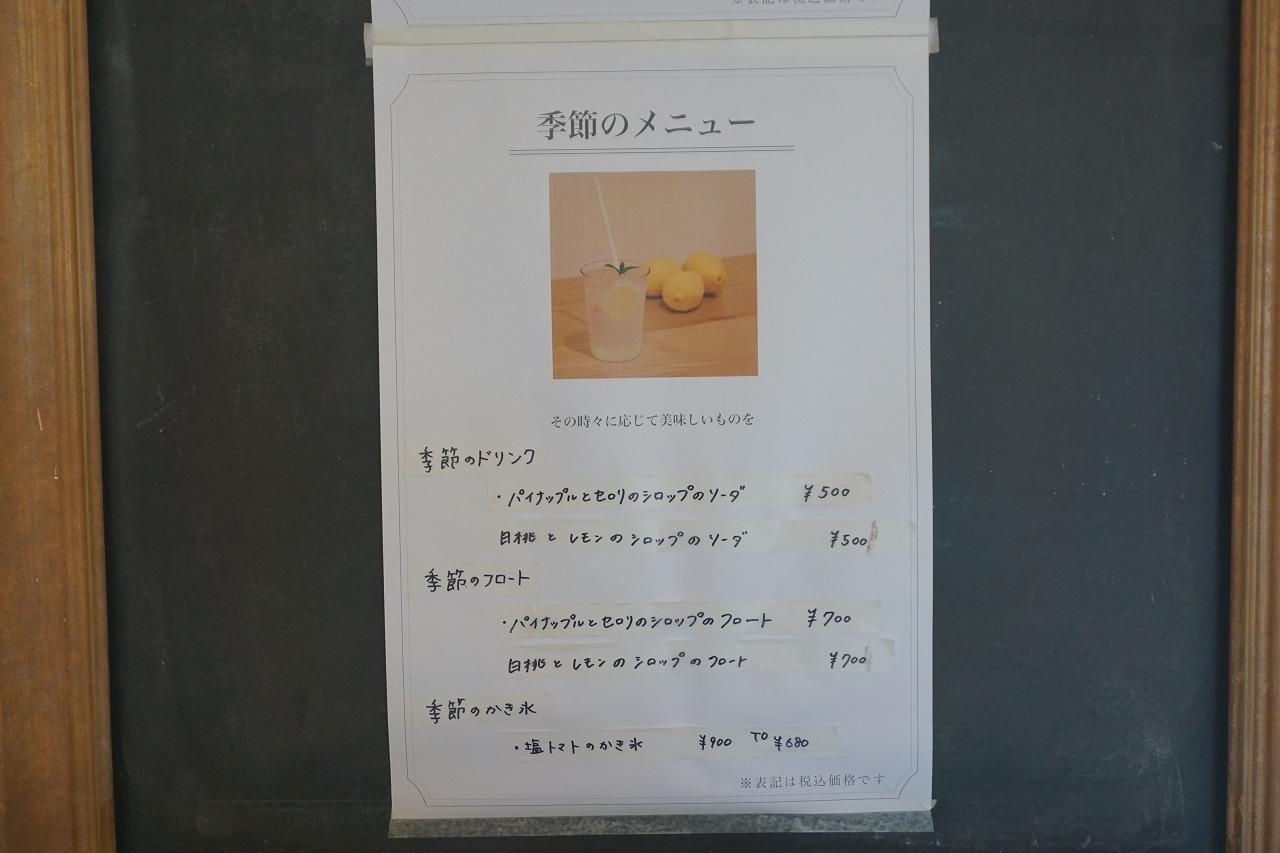 ※表記は税込価格です
季節のメニュー
その時々に応じて美味しいものを
季節のドリンク
・パイナップルとセロリのシロップのソーダ ¥500
白桃とレモンのシロップのソーダ ¥500
季節のフロート
・パイナップルとセロリのシロップのフロート ¥700
白桃とレモンのシロップのフロート ¥700
季節のかき氷
・塩トマトのかき氷 ¥900 TO ¥680
※表記は税込価格です